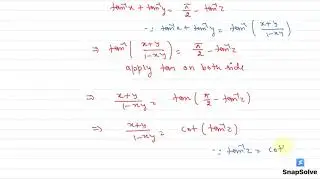 tan⁻¹x + tan⁻¹y = π/2 - tan⁻¹z
∵ tan⁻¹x + tan⁻¹y = tan⁻¹(x+y/1-xy)
⇒ tan⁻¹(x+y/1-xy) = π/2 - tan⁻¹z
apply tan on both side
⇒ x+y/1-xy = tan(π/2 - tan⁻¹z)
⇒ x+y/1-xy = cot(tan⁻¹z)
∵ tan⁻¹z = cot
SnapSolve